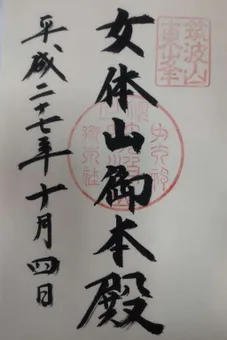 筑波山
東峯
女体山御本殿
平成二十七年十月四日